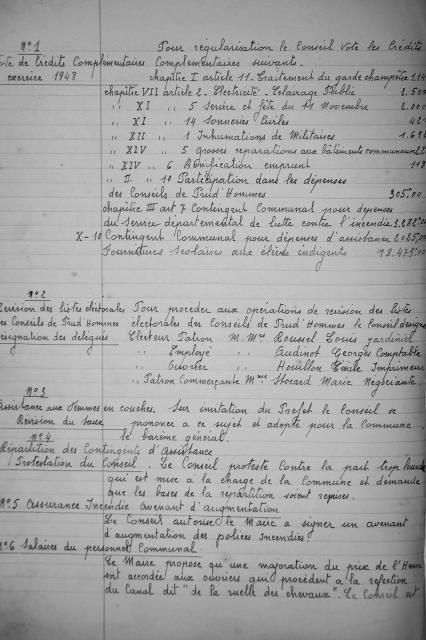 N° 1 Pour régularisation le Conseil vote les Crédits
Vote de Crédits Complémentaires Complémentaires suivants.
exercice 1948 chapitre I article 11 - Traitement du garde champêtre 1.14
chapitre VII article 2 - Electricité - Eclairage Public 2.500
,, XI ,, 5 Service et fête du 11 Novembre 2.000
,, XI ,, 14 Sonneries Civiles 42
,, XII ,, 1 Inhumations de Militaires 1.69
,, XIV ,, 5 grosses réparations aux bâtiments communaux
,, XIV ,, 6 Bonification emprunt 118
,, II ,, 10 Participation dans les dépenses
des Conseils de Prud'Hommes 305,00
chapitre III art 7 Contingent Communal pour dépenses
du Service départemental de lutte contre l'incendie 3.282,00
X - 10 Contingent Communal pour dépenses d'assistance 2.025,00
Fournitures Scolaires aux élèves indigents 18.479,00
N° 2
Révision des listes électorales Pour procéder aux opérations de revision des listes
des Conseils de Prud'Hommes électorales des Conseils de Prud'Hommes le Conseil désigne
désignation des délégués Electeur Patron M. Mr Roussel Louis jardinier
,, Employé ,, Audinot Georges Comptable
,, Ouvrier ,, Houillon Emile Imprimeur
,, Patron Commerçante Mme Stocard Marie Négociante
N° 3
Assistance aux femmes en couches. Sur invitation du Préfet le Conseil se
Révision du taux prononce à ce sujet et adopte pour la Commune
le barème général.
N° 4
Répartition des Contingents d'Assistance
Protestation du Conseil. Le Conseil proteste contre la part trop lourde
qui est mise à la charge de la Commune et demande
que les bases de la répartition soient revises.
N° 5 Assurance Incendie Avenant d'augmentation
Le Conseil autorise le Maire à signer un avenant
d'augmentation des polices Incendies.
N° 6 Salaires du personnel Communal
Le Maire propose qu'une majoration du prix de l'Heure
soit accordée aux ouvriers qui procèdent à la réfection
du Canal dit "de la ruelle des chevaux". Le Conseil est